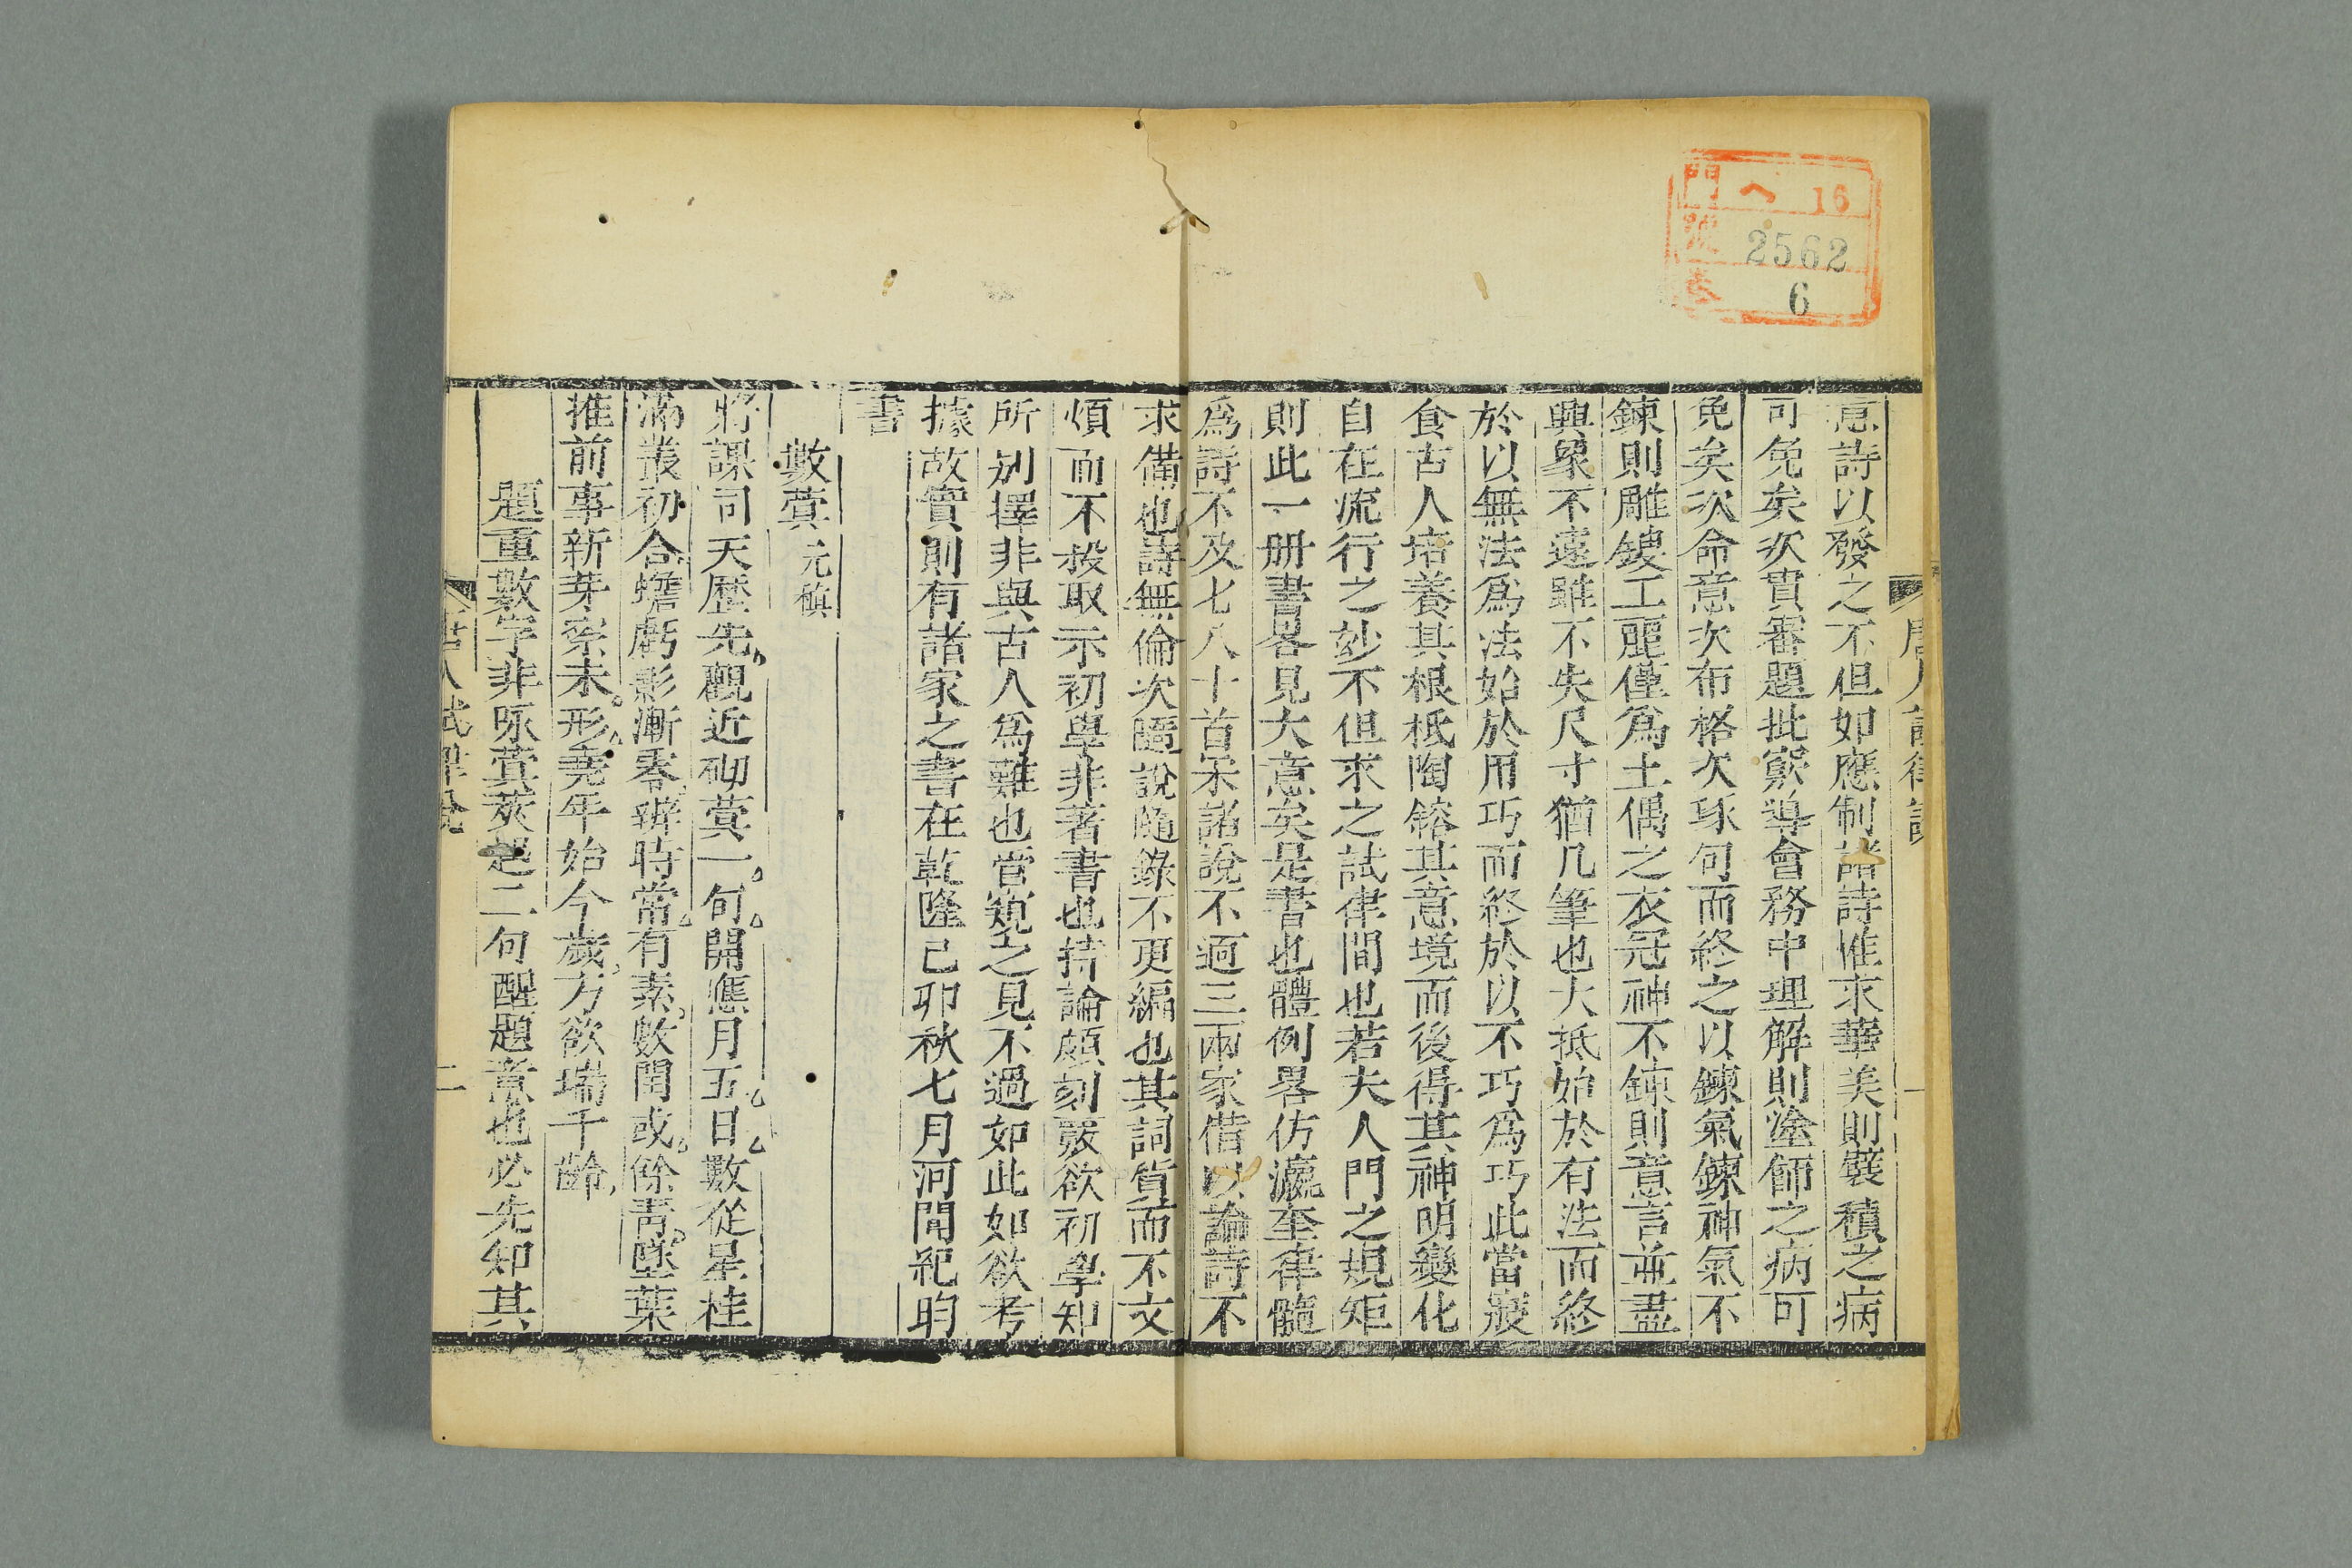 門 ヘ 16
號 2562
卷 6
唐人試律說 一
意詩以發之不但如應制諸詩惟求華美則襞積之病
可免矣次貴審題批窾導會務中理解則塗飾之病可
免矣次命意次布格次琢句而終之以鍊氣鍊神氣不
鍊則雕鏤工麗僅爲土偶之衣冠神不鍊則意言並盡
興象不遠雖不失尺寸猶凡筆也大抵始於有法而終
於以無法爲法始於用巧而終於以不巧爲巧此當寢
食古人培養其根柢陶鎔其意境而後得其神明變化
自在流行之妙不但求之試律間也若夫人門之規矩
則此一册書畧見大意矣是書也體例畧仿瀛奎律髓
爲詩不及七八十首采諸說不過三兩家借以論詩不
求備也詩無倫次隨說隨錄不更編也其詞質而不文
煩而不殺取示初學非著書也持論頗刻覈欲初學知
所別擇非與古人爲難也管窺之見不過如此如欲考
據故實則有諸家之書在乾隆己卯秋七月河間紀昀
書
數蓂 元稹
將課司天歷先觀近砌蓂一句開應月五日數從星桂
滿叢初合蟾虧影漸零辨時常有素數閏或餘靑墜葉
推前事新芽察未形堯年始今歲方欲瑞千齡
題重數字非咏蓂莢起二句醒題意也必先知其
唐人試律說 二